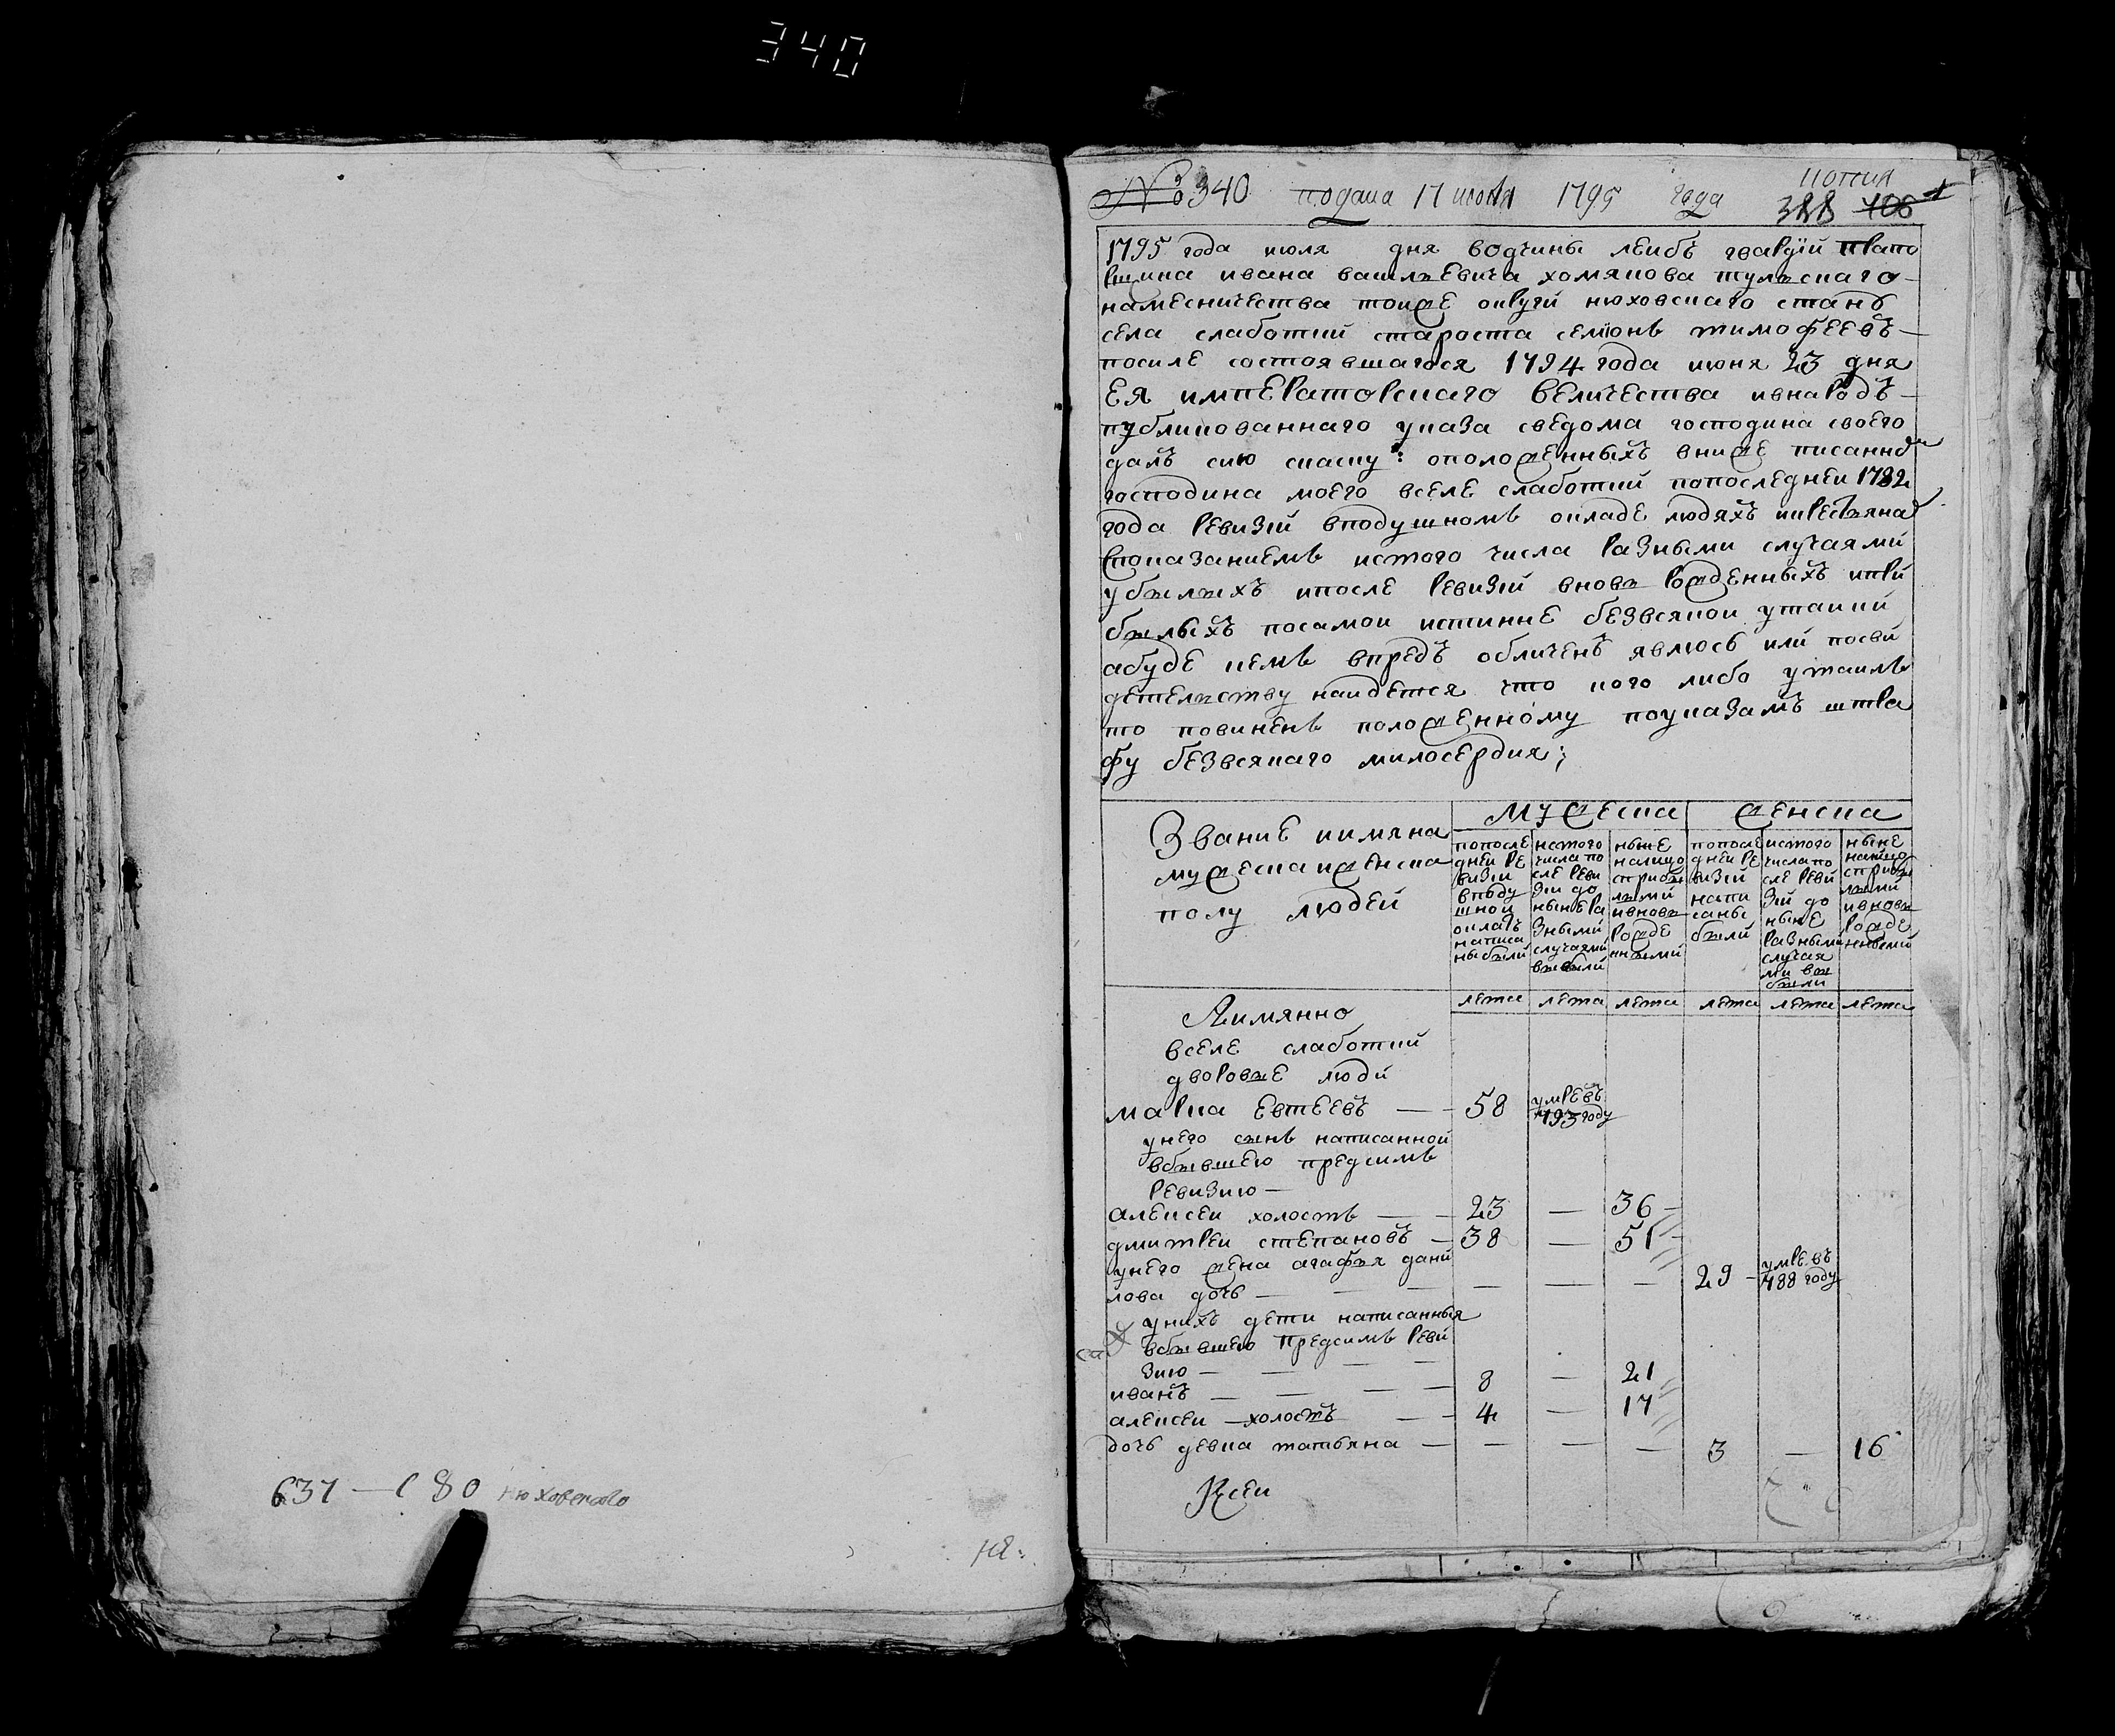 340
№ 340 подана 17 июля 1795 года
копия
388 106
1795 года июля дня вотчины леибъ гвардїй прапо
рщика ивана васильевича хомякова тульскаго
намесничества тоиже округи нюховскаго стану
села слаботки староста семіонъ тимофеевъ
посиле состоявшагося 1794 года июня 23 дня
ея императорскаго величества ивнародъ
публикованнаго указа сведома господина своего
далъ сию скаску: оположенныхъ вниже писанно
господина моего вселе слаботки попоследнеи 1782
года ревизіи вподушномъ окладе людяхъ икрестьяна
споказаниемъ истого числа разными случаями
убылыхъ ипосле ревизіи вновь рожденныхъ ипри
былыхъ посамои истинне безвсякои утаики
абуде кемъ впредъ обличенъ явлюсь или посви
детельству наидется что кого либо утаилъ
то повиненъ положенному поуказамъ штра
фу безвсякаго милосердия;
Звание иимяна
мужеска иженска
полу людеи
мужеска
женска
попосле
днеи ре
визіи
вподу
шнои
окладъ
написа
ны были
истого
числа по
сле реви
зіи до
ныне ра
зными
случаями
выбыли
ныне
налицо
сприбы
лыми
ивновь
рожде
нными
попосле
днеи ре
визіи
напи
саны
были
истого
числа по
сле реви
зіи до
ныне
разными
случая
ми вы
были
ныне
налицо
сприбы
лыми
ивновь
рожде
нными
лета лета лета лета лета лета
Аимянно
вселе слаботки
дворовые люди
марка евтеевъ — 58 умре въ 793 году
унего сынъ написанной
вбывшею предсимъ
ревизию —
алексеи холостъ — 23 — 36
дмитреи степановъ — 38 — 51
унего жена агафья дани
лова дочь — — — — 29 умре въ 788 году
унихъ дети написанныя
вбывшею предсимъ реви
зию —
иванъ — 8 — 21
алексеи — холостъ — 4 — 17
дочь девка татьяна — — — — 3 — 16
Ксеи
631 — 180 нюховского